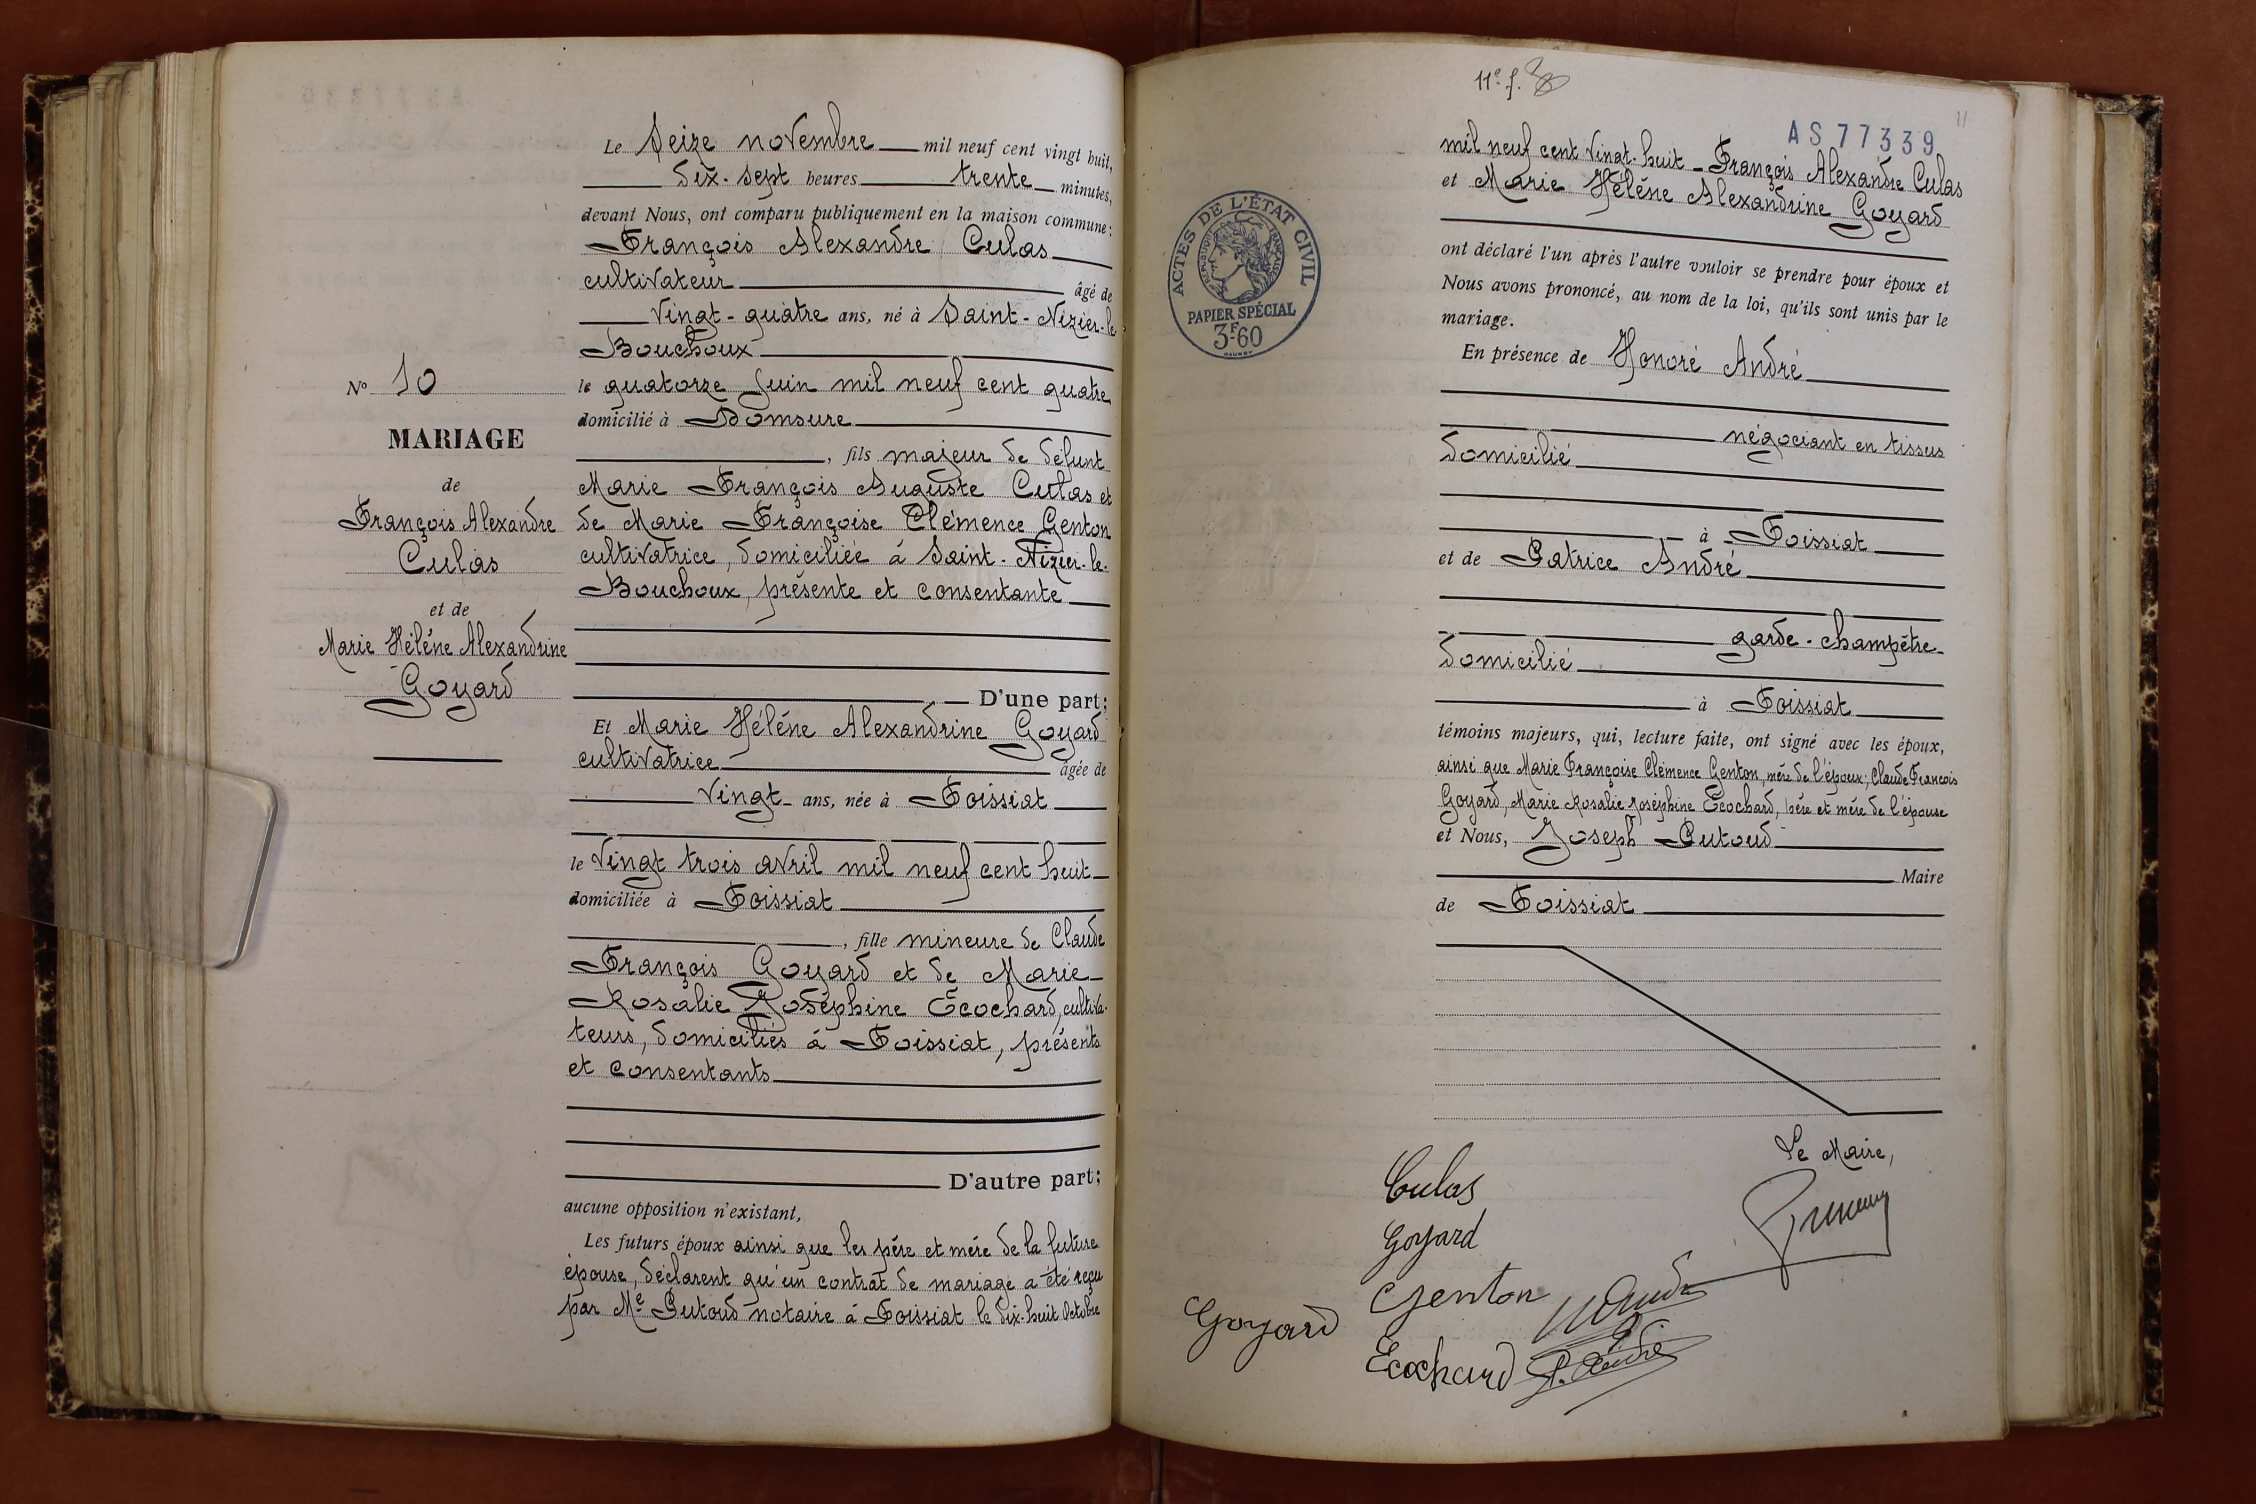 Le Seize novembre mil neuf cent vingt huit,
dix-sept heures trente minutes,
devant Nous, ont comparu publiquement en la maison commune:
François Alexandre Culas
cultivateur âgé de
vingt-quatre ans, né à Saint-Nizier-le
Bouchoux
le quatorze Juin mil neuf cent quatre
domicilié à Domsure
, fils majeur de défunt
Marie François Auguste Culas et
de Marie Françoise Clémence Genton
cultivatrice, domiciliée à Saint-Nizier-le-
Bouchoux, présente et consentante
D'une part;
Et Marie Héléne Alexandrine Goyard
cultivatrice âgée de
vingt ans, née à Foissiat
le vingt trois avril mil neuf cent huit
domiciliée à Foissiat
, fille mineure de Claude
François Goyard et de Marie
Rosalie Joséphine Ecochard, cultiva-
teurs, domiciliés à Foissiat, présents
et consentants
D'autre part;
aucune opposition n'existant,
Les futurs époux ainsi que les père et mère de la future
épouse, déclarent qu'un contrat de mariage a été reçu
par Me Putoud notaire à Foissiat le dix-huit Octobre
No 10
MARIAGE
de
François Alexandre
Culas
et de
Marie Héléne Alexandrine
Goyard
11e f.
11
AS77339
mil neuf cent vingt-huit - François Alexandre Culas
et Marie Héléne Alexandrine Goyard
ont déclaré l'un après l'autre vouloir se prendre pour époux et
Nous avons prononcé, au nom de la loi, qu'ils sont unis par le
mariage.
En présence de Honoré André
négociant en tissus
domicilié
à Foissiat
et de Patrice André
garde-champêtre
domicilié
à Foissiat
témoins majeurs, qui, lecture faite, ont signé avec les époux,
ainsi que Marie Françoise Clémence Genton, mère de l'époux; Claude François
Goyard, Marie Rosalie Joséphine Ecochard, père et mère de l'épouse
et Nous, Joseph Putoud
Maire
de Foissiat
ACTES DE L'ÉTAT CIVIL
RÉPUBLIQUE FRANÇAISE
PAPIER SPÉCIAL
3F60
Le Maire,
Culas
Goyard
Genton
Goyard
Ecochard
P. André